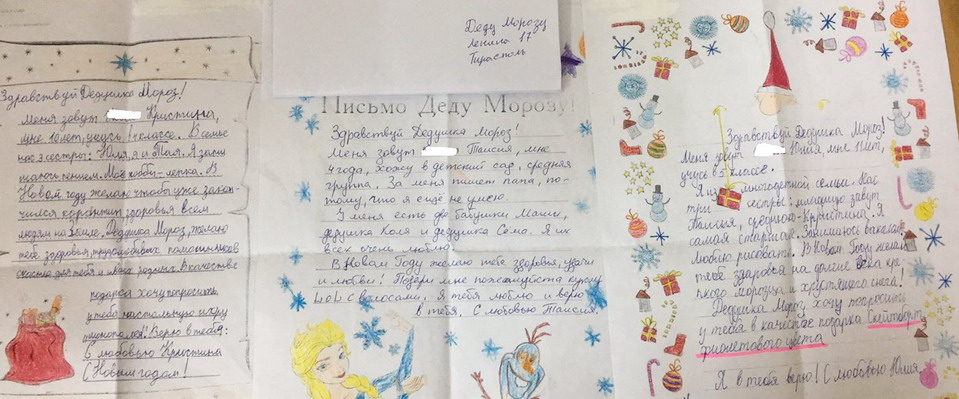 Здравствуй Дедушка Мороз!
Меня зовут Кристина,
мне 10 лет, учусь 1 классе. В семье
нас 3 сестры: Юлия, я и Тая. Я зани
маюсь пением. Моё хобби - лепка. В
Новом году желаю чтобы уже закон-
чился коронавирус, здоровья всем
людям на Земле. Дедушка Мороз, желаю
тебе здоровья, трудолюбивых помощников
счастья для тебя и твоих родных. В качестве
подарка хочу попросить
у тебя настольную игру
монополия! Верю в тебя!
С любовью Кристина
С Новым годом!
Деду Морозу
Ленина 17
Тирасполь
Письмо Деду Морозу!
Здравствуй Дедушка Мороз!
Меня зовут Таисия, мне
4 года, хожу в детский сад, средняя
группа. За меня пишет папа, по-
тому, что я ещё не умею.
У меня есть две бабушки Маши,
дедушка Коля и дедушка Сёма. Я их
всех очень люблю.
В Новом Году желаю тебе здоровья, удачи
и любви! Подари мне пожалуйста куклу
LOL с волосами. Я тебя люблю и верю
в тебя, С любовью Таисия.
Здравствуй Дедушка Мороз!
Меня зовут Юлия, мне 11 лет,
учусь в 5 классе.
Я из многодетной семьи. Нас
три сестры: младшую зовут
Таисия, среднюю - Кристина. Я
самая старшая. Занимаюсь вокалом
Люблю рисовать. В Новом Году желаю
тебе здоровья на долгие века кре-
пкого морозца и хрустящего снега!
Дедушка Мороз хочу попросить
у тебя в качестве подарка Скейтборд
фиолетового цвета
Я в тебя верю! С любовью Юлия